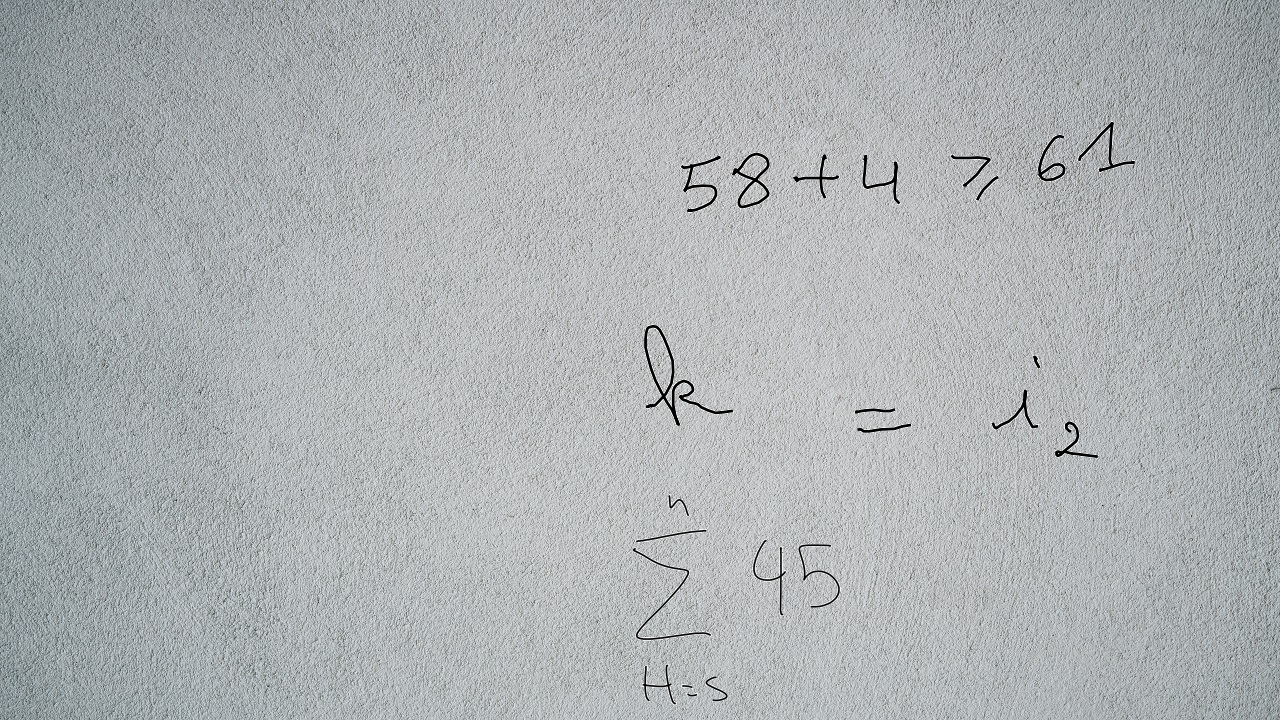 58 + 4 ⩾ 61
k = i_2
\sum_{H=s}^{n} 45